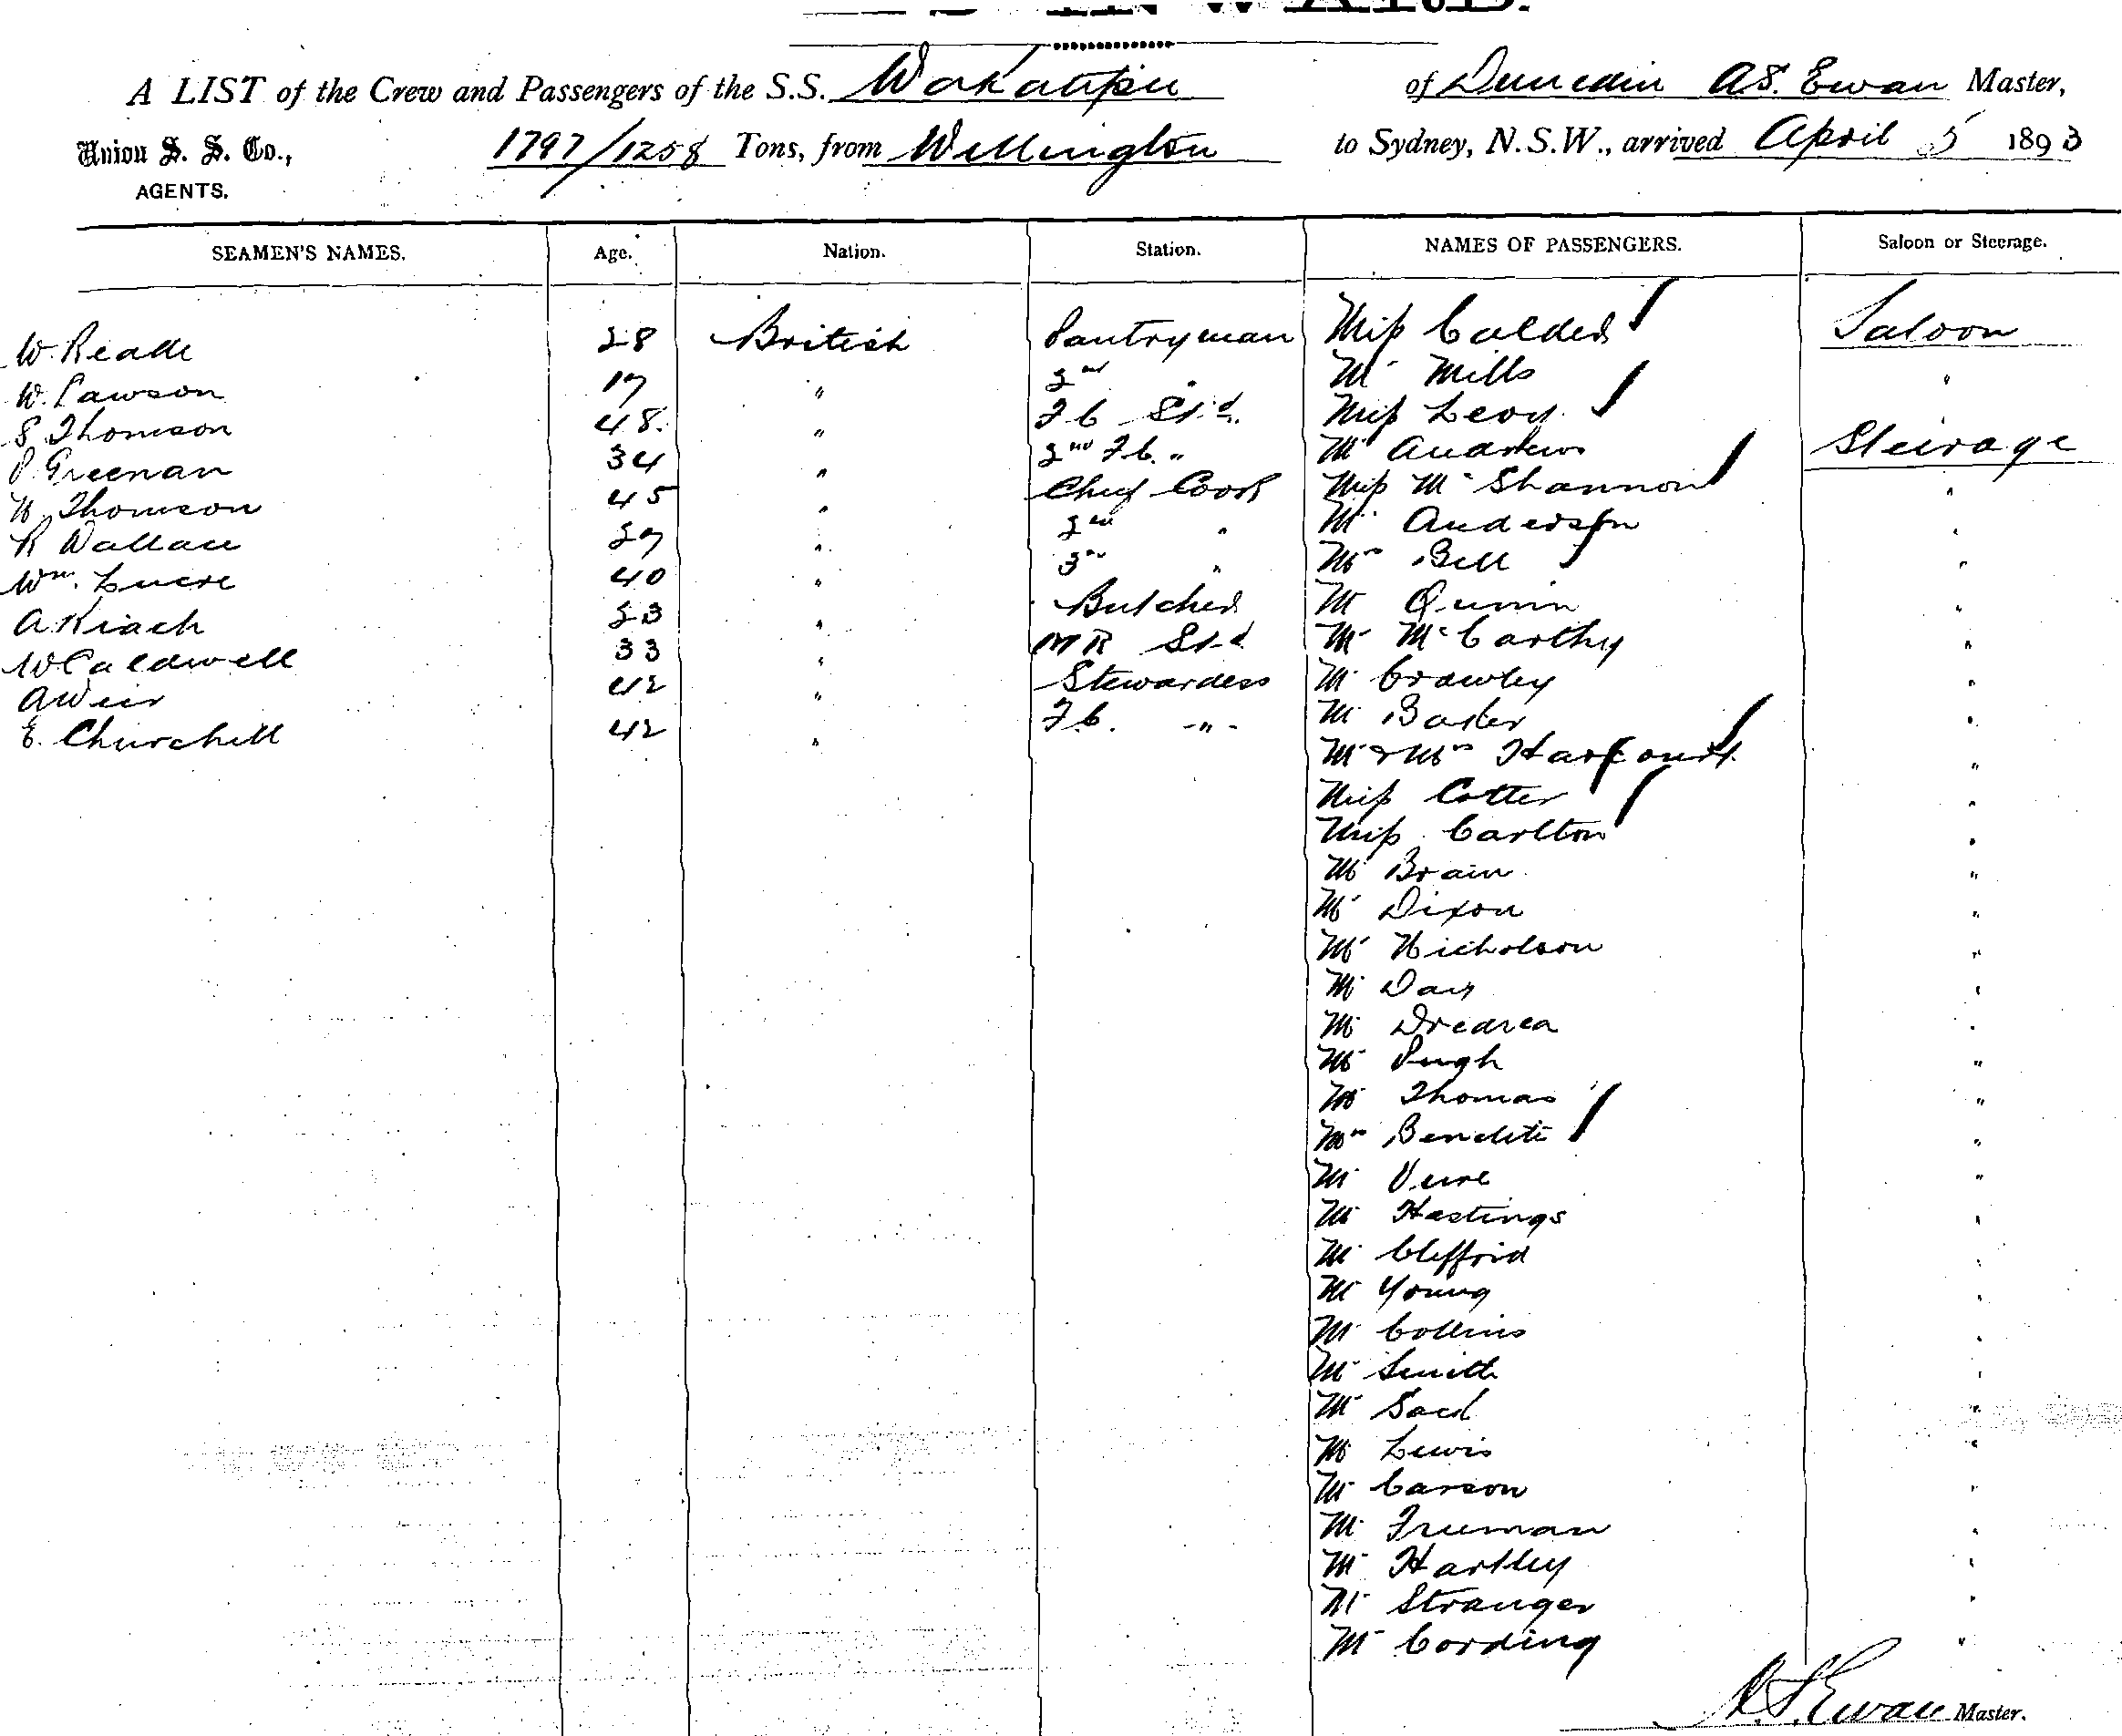 A LIST of the Crew and Passengers of the S.S. Wakatipu of Dunedin A.S. Ewan Master,
Union S. S. Co., 1797/1258 Tons, from Wellington to Sydney, N.S.W., arrived April 5 1893
AGENTS.
SEAMEN'S NAMES. Age. Nation. Station. NAMES OF PASSENGERS. Saloon or Steerage.
W. Reade 28 British Pantryman Miss Calder Saloon
W. Lawson 17 " 2nd " Mr Mills "
S Thomson 48 " F C Std. Miss Levy
P. Greenan 34 " 2nd F.C. " Mr Andrews Steerage
W. Thomson 45 " Chief Cook Miss McShannon "
R Wallace 27 " 2nd " Mr Anderson "
Wm. Lucre 40 " 3rd " Mrs Bell "
A Kiach 23 " Butcher Mr Quinn "
W Caldwell 33 " M R Std Mr McCarthy "
A Weir 42 " Stewardess Mr Crawley "
E. Churchill 42 " F.C. " Mr Baxter "
Mr & Mrs Harcourt "
Miss Cotter "
Miss Carlton "
Mr Brain "
Mr Dixon "
Mr Nicholson "
Mr Day "
Mr "
Mr Pugh "
Mr Thomas "
Mrs "
Mr "
Mr Hastings "
Mr "
Mr Young "
Mr Collins "
Mr Smith "
Mr "
Mr Lewis "
Mr Carson "
Mr Truman "
Mr Hartley "
Mr Stranger "
Mr Cording "
A.S. Ewan Master.